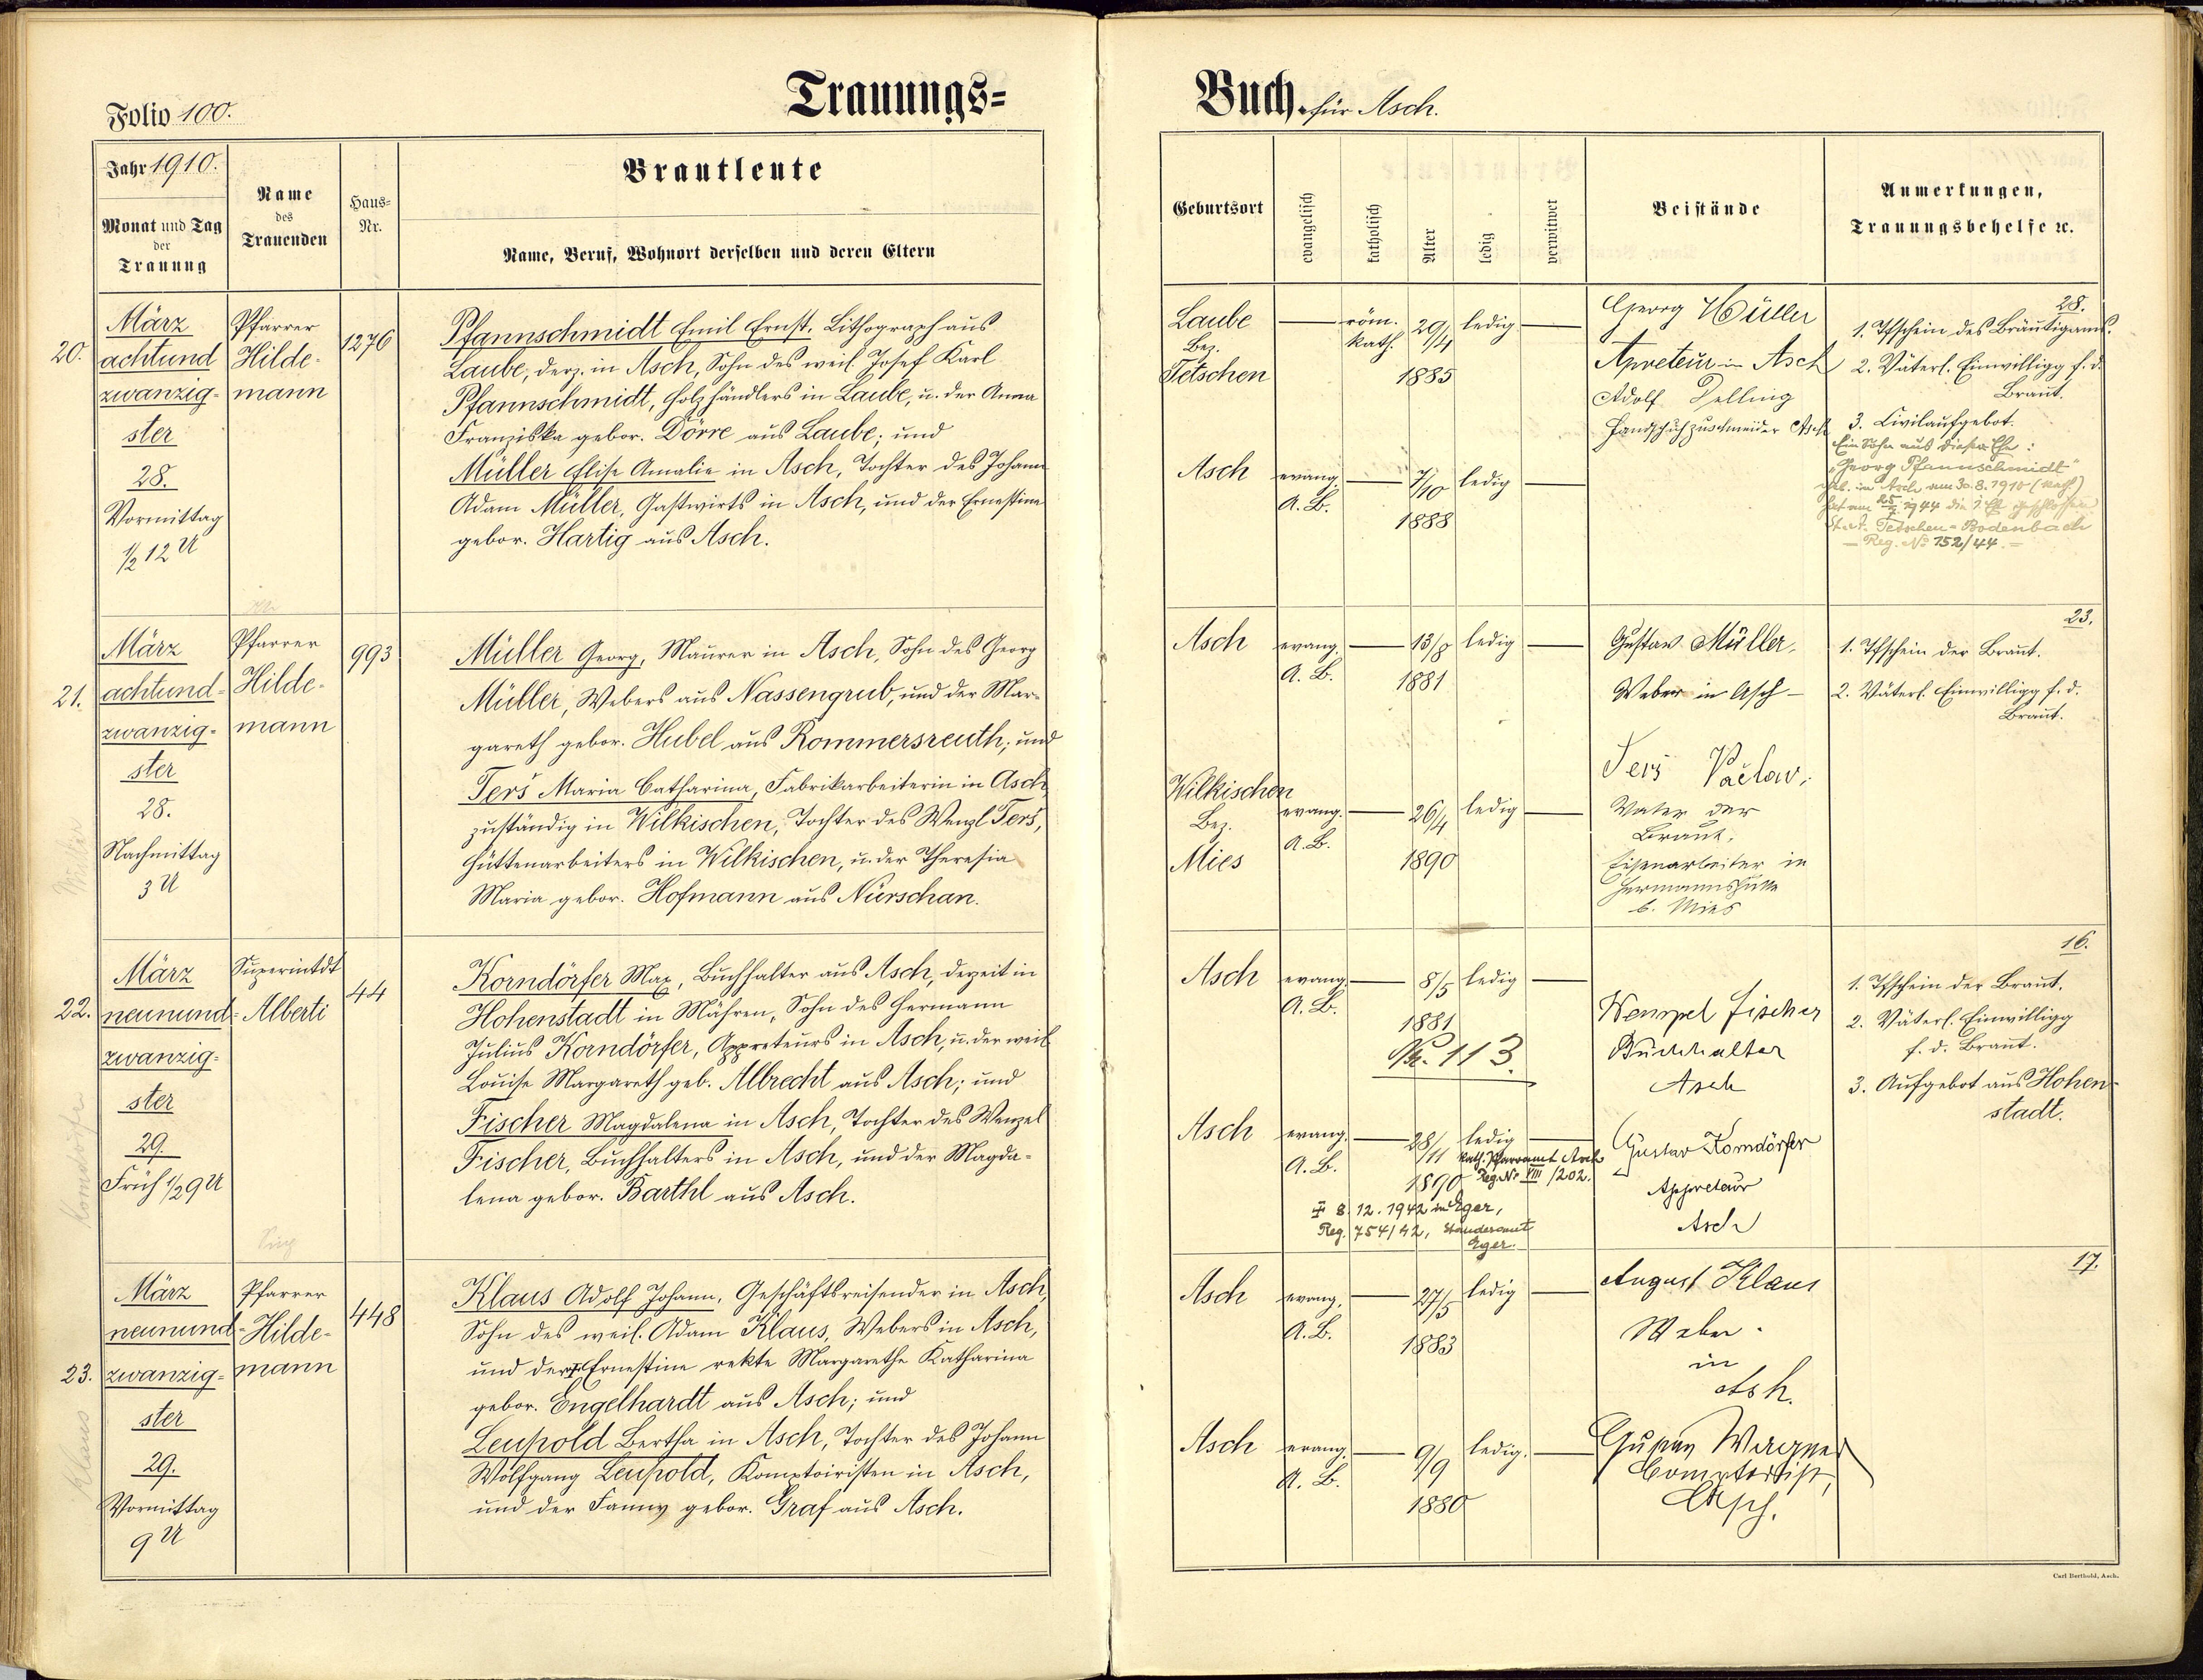 Folio 100.
Trauungs=
Jahr 1910.
Monat und Tag
der
Trauung
Name
des
Trauenden
Haus=
Nr.
Brautleute
Name, Beruf, Wohnort derselben und deren Eltern
20.
März
achtund
zwanzig-
ster
28.
Vormittag
½ 12 U
Pfarrer
Hilde-
mann
1276
Pfannschmidt Emil Ernst, Lithograph aus
Laube, derz. in Asch, Sohn des weil. Josef Karl
Pfannschmidt, Holzhändlers in Laube, u. der Anna
Franziska gebor. Dörre aus Laube; und
Müller Elise Amalie in Asch, Tochter des Johann
Adam Müller, Gastwirts in Asch, und der Ernestine
gebor. Hartig aus Asch.
21.
März
achtund-
zwanzig-
ster
28.
Nachmittag
3 U
Pfarrer
Hilde-
mann
993
Müller Georg, Maurer in Asch, Sohn des Georg
Müller, Webers aus Nassengrub, und der Mar-
gareth gebor. Hubel aus Rommersreuth; und
Terš Maria Catharina, Fabrikarbeiterin in Asch,
zuständig in Wilkischen, Tochter des Wenzl Terš,
Hüttenarbeiters in Wilkischen, u. der Theresia
Maria gebor. Hofmann aus Nürschan.
Müller
22.
März
neunund-
zwanzig-
ster
29.
Früh ½ 9 U
Superintdt
Alberti
44
Korndörfer Max, Buchhalter aus Asch, derzeit in
Hohenstadt in Mähren, Sohn des Hermann
Julius Korndörfer, Appreteurs in Asch, u. der weil.
Louise Margareth geb. Albrecht aus Asch; und
Fischer Magdalena in Asch, Tochter des Wenzel
Fischer, Buchhalters in Asch, und der Magda-
lena gebor. Barthl aus Asch.
Korndörfer
23.
März
neunund-
zwanzig-
ster
29.
Vormittag
9 U
Pfarrer
Hilde-
mann
448
Klaus Adolf Johann, Geschäftsreisender in Asch,
Sohn des weil. Adam Klaus, Webers in Asch,
und der Ernestine rekte Margarethe Katharina
gebor. Engelhardt aus Asch; und
Leupold Bertha in Asch, Tochter des Johann
Wolfgang Leupold, Komptoiristen in Asch,
und der Fanny gebor. Graf aus Asch.
Klaus
Buch. für Asch.
Geburtsort
evangelisch
katholisch
Alter
ledig
verwitwet
Beistände
Anmerkungen,
Trauungsbehelfe ꝛc.
Laube
Bez.
Tetschen
röm.
kath.
29/4
1885
ledig
Asch
evang.
A. B.
7/10
1888
ledig
Georg Müller
Apreteur in Asch
Adolf Delling
Handschuhzuschneider Asch
28.
1. Tfschein des Bräutigams.
2. Väterl. Einwilligg f. d.
Braut.
3. Civilaufgebot.
Ein Sohn aus dieser Ehe:
"Georg Pfannschmidt"
geb. in Asch am 30.8.1910 (kath)
hat am 1944 die Ehe geschlossen
St.A. Tetschen-Bodenbach
Reg. No 152/44.
Asch
evang.
A. B.
13/8
1881
ledig
Wilkischen
Bez.
Mies
evang.
A. B.
26/4
1890
ledig
Gustav Müller,
Weber in Asch
Terš Václav,
Vater der
Braut,
Eisenarbeiter in
Hermannshütte
b. Mies
23.
1. Tfschein der Braut.
2. Väterl. Einwilligg f. d.
Braut.
Asch
evang.
A. B.
8/5
1881
ledig
113.
Asch
evang.
A. B.
28/11
1890
ledig
kath. Pfarramt Asch
Reg. Nr VIII/202.
8.12.1942 in Eger,
Reg. 754/42, Standesamt
Eger.
Wenzel Fischer
Buchhalter
Asch
Gustav Korndörfer
Appreteur
Asch
16.
1. Tfschein der Braut.
2. Väterl. Einwilligg
f. d. Braut.
3. Aufgebot aus Hohen-
stadt.
Asch
evang.
A. B.
27/5
1883
ledig
Asch
evang.
A. B.
9/9
1880
ledig.
August Klaus
Weber
in
Asch.
Gustav Wagner
Comptorist,
Asch.
17.
Carl Berthold, Asch.